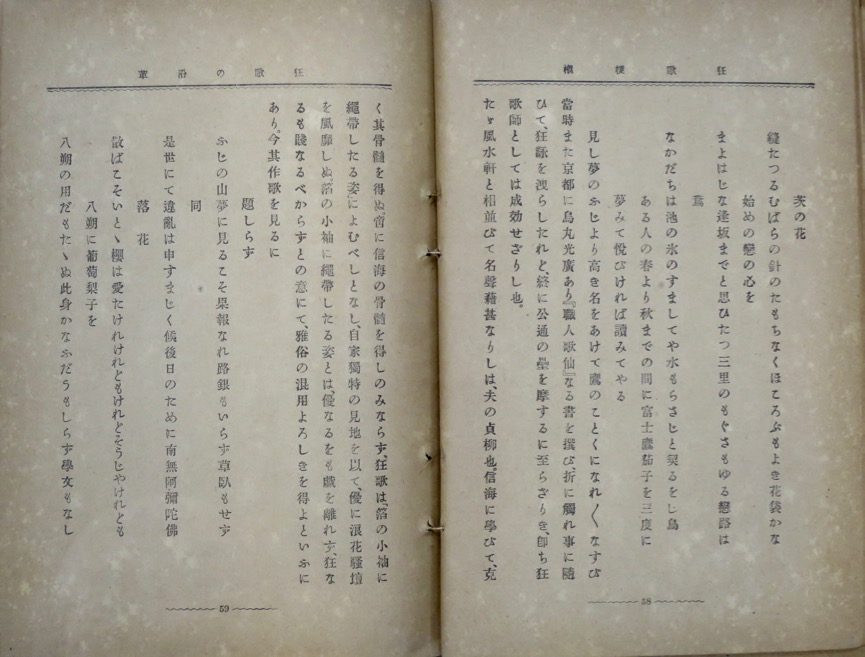 狂歌梗槪
茨の花
縫たつるむばらの針のたもちなくほころぶもよき花袋かな
始めの戀の心を
まよはじな逢坂までと思ひたつ三里のもぐさもゆる戀路は
鴛
なかだちは池の氷のすましてや水もらさじと契るをし鳥
ある人の春より秋までの間に富士鷹茄子を三度に
夢みて悅びければ讀みてやる
見し夢のふじより高き名をあげて鷹のことくになれ〳〵なすび
當時また京都に烏丸光廣あり『職人歌仙』なる書を撰び、折に觸れ事に隨
ひて、狂謠を洩らしたれど、終に公通の壘を摩するに至らざりき、卽ち狂
歌師としては成効せざりし也。
たゞ風水軒と相並びて名聲藉甚なりしは、夫の貞柳也。信海に學びて、克
58
狂歌の沿革
く其骨髓を得ぬ。啻に信海の骨髓を得しのみならず、狂歌は、箔の小袖に
繩帶したる姿によむべしとなし、自家獨特の見地を以て、優に浪花騷壇
を風靡しぬ。箔の小袖に繩帶したる姿とは、優なるをも戲を離れず、狂な
るも賤なるべからずとの意にて、雅俗の混用よろしきを得よといふに
あり。今其作歌を見るに
題しらず
ふじの山夢に見るこそ果報なれ路銀もいらず草臥もせず
同
是世にて違亂は申すまじく候後日のために南無阿彌陀佛
落花
散ばこそいとゝ櫻は愛たけれけれどもけれどそうじやけれども
八朔に葡萄梨子を
八朔の用だもたゝぬ此身かなぶだうもしらず學文もなし
59